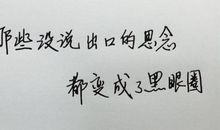 那些没说出口的思念
都变成了黑眼圈